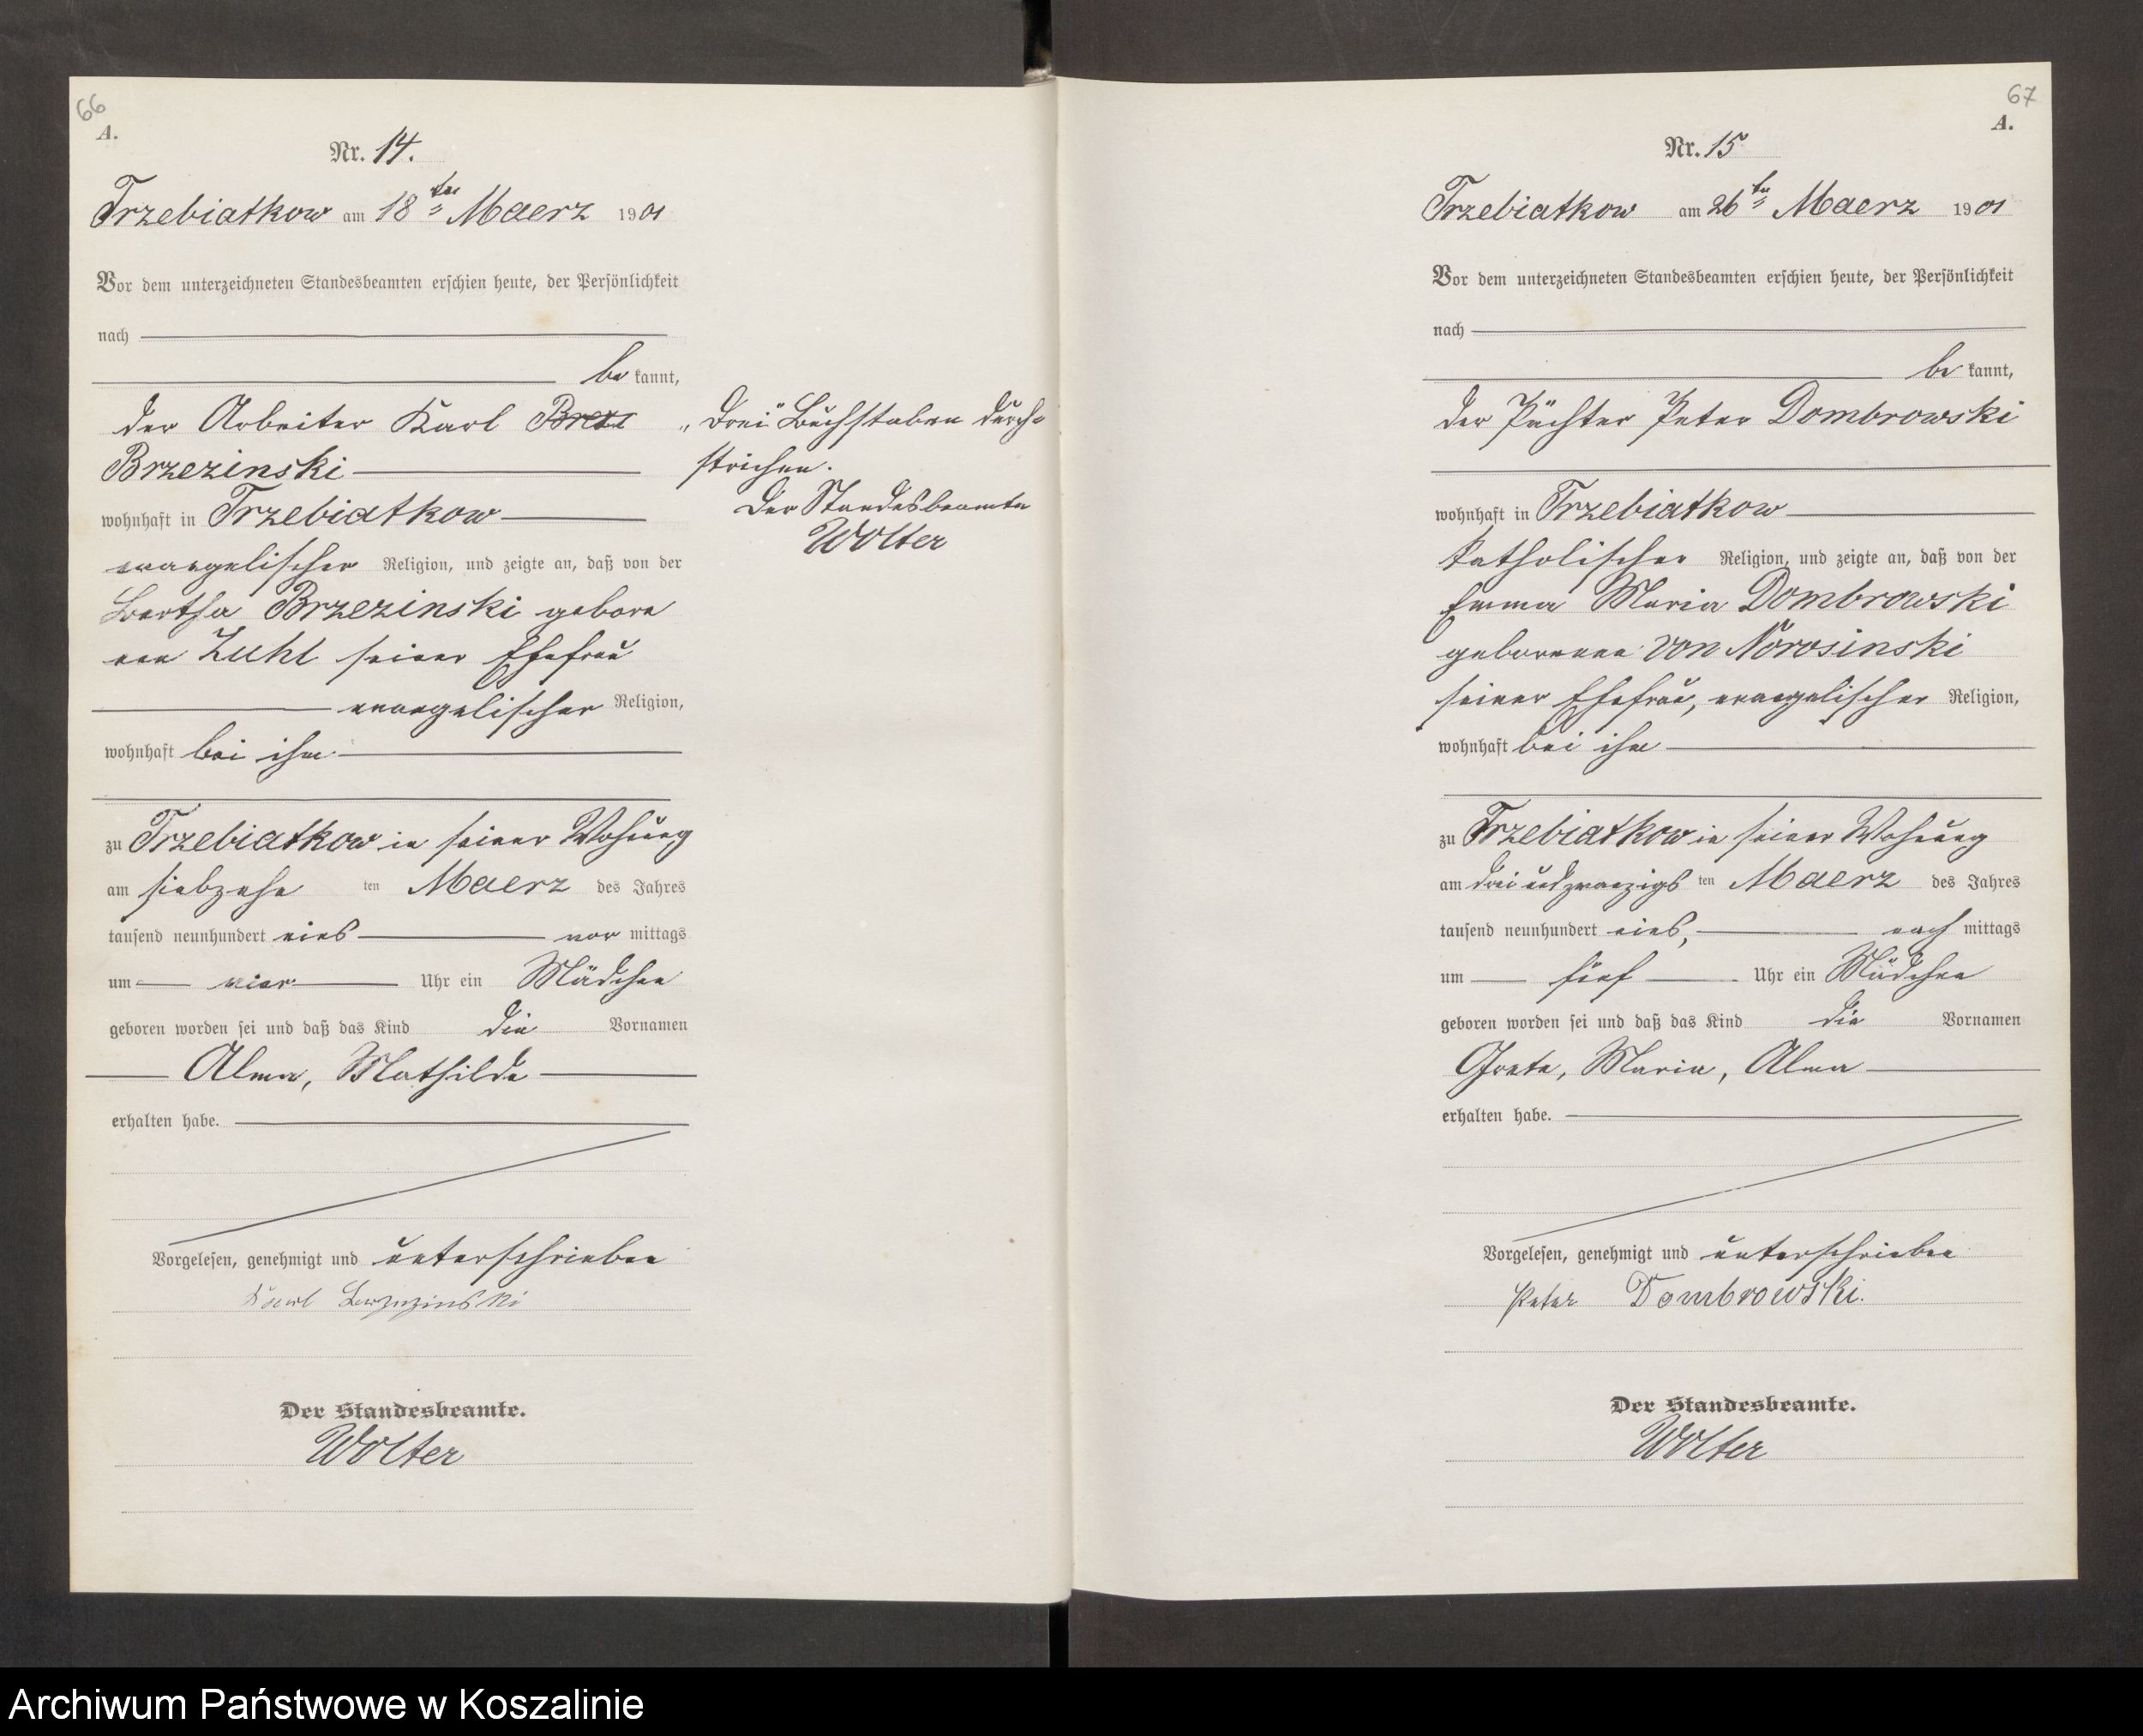 66
A.
Nr. 14.
Trzebiatkow am 18ten Maerz 1901
Vor dem unterzeichneten Standesbeamten erschien heute, der Persönlichkeit
nach
be kannt,
der Arbeiter Karl
Brzezinski
wohnhaft in Trzebiatkow
evangelischer Religion, und zeigte an, daß von der
Bertha Brzezinski gebore
nen Zuhl seiner Ehefrau
evangelischer Religion,
wohnhaft bei ihm
zu Trzebiatkow in seiner Wohnung
am siebzehn ten Maerz des Jahres
tausend neunhundert eins vor mittags
um vier Uhr ein Mädchen
geboren worden sei und daß das Kind die Vornamen
Alma, Mathilde
erhalten habe.
Vorgelesen, genehmigt und unterschrieben
Karl Brzezinski
Der Standesbeamte.
Wolter
„Drei" Buchstaben durch=
strichen.
Der Standesbeamte
Wolter
67
A.
Nr. 15
Trzebiatkow am 26ten Maerz 1901
Vor dem unterzeichneten Standesbeamten erschien heute, der Persönlichkeit
nach
be kannt,
der Pächter Peter Dombrowski
wohnhaft in Trzebiatkow
katholischer Religion, und zeigte an, daß von der
Emma Maria Dombrowski
geborenen von
seiner Ehefrau, evangelischer Religion,
wohnhaft bei ihm
zu Trzebiatkow in seiner Wohnung
am drei und zwanzigs ten Maerz des Jahres
tausend neunhundert eins, nach mittags
um fünf Uhr ein Mädchen
geboren worden sei und daß das Kind die Vornamen
Grete, Maria, Alma
erhalten habe.
Vorgelesen, genehmigt und unterschrieben
Peter Dombrowski.
Der Standesbeamte.
Wolter
Archiwum Państwowe w Koszalinie